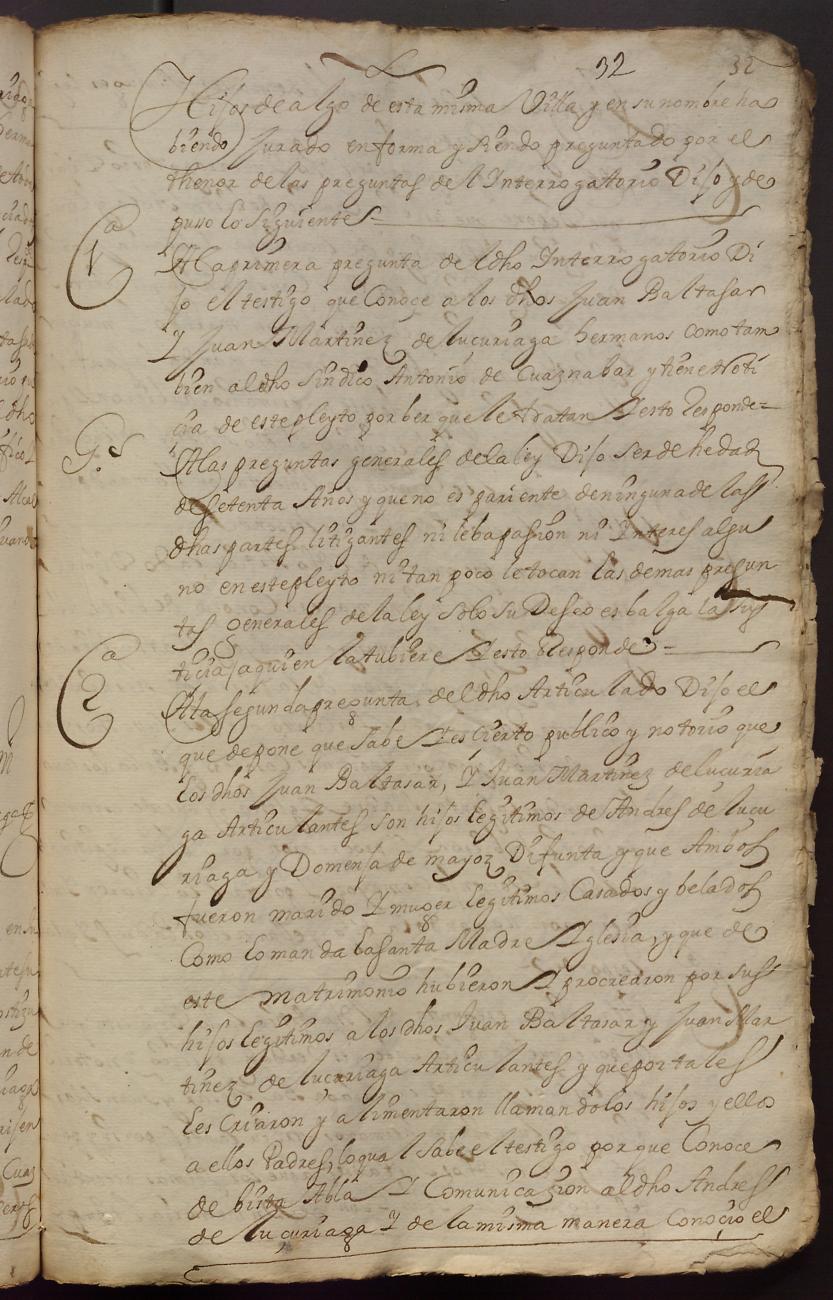 32 32
Hijosdealgo de esta misma Villa y en su nombre ha
biendo Jurado en forma y siendo preguntado por el
thenor de las preguntas del Interrogatorio Dijo y de
puso lo siguiente
1ª
A la primera pregunta del dho Interrogatorio Di
jo el testigo que Conoce a los dhos Juan Baltasar
Y Juan Martinez de lucuriaga hermanos como tam
bien al dho sindico Antonio de Cuaznabar y tiene Noti
cia de este pleyto por ber que le tratan Y esto Responde=
G.s
A las preguntas generales de la ley Dijo ser de hedad
de setenta Años y que no es pariente de ninguna de las
dhas partes litigantes ni le ba pasion ni Interes algu
no en este pleyto ni tan poco le tocan las demas pregun
tas generales de la ley solo su Deseo es balga la jus
ticia a quien la tubiere Y esto Responde =
2ª
A la segunda pregunta del dho Articulado Dijo el
que depone que sabe Y es cierto publico y notorio que
los dhos Juan Baltasar, Y Juan Martinez de lucuria
ga Articulantes son hijos legitimos de Andres de lucu
riaga y Domensa de mayoz Difunta y que Ambos
fueron marido Y muger legitimos Casados y belados
Como lo manda la santa Madre Yglesia, y que de
este matrimonio hubieron Y procrearon por sus
hijos legitimos a los dhos Juan Baltasar y Juan Mar
tinez de lucuriaga Articulantes y que por tales
les Criaron y alimentaron llamandolos hijos y ellos
a ellos Padres, lo qual sabe el testigo por que Conoce
de bista Abla Y Comunicazion al dho Andres
de lucuriaga Y de la misma manera Conoçio el